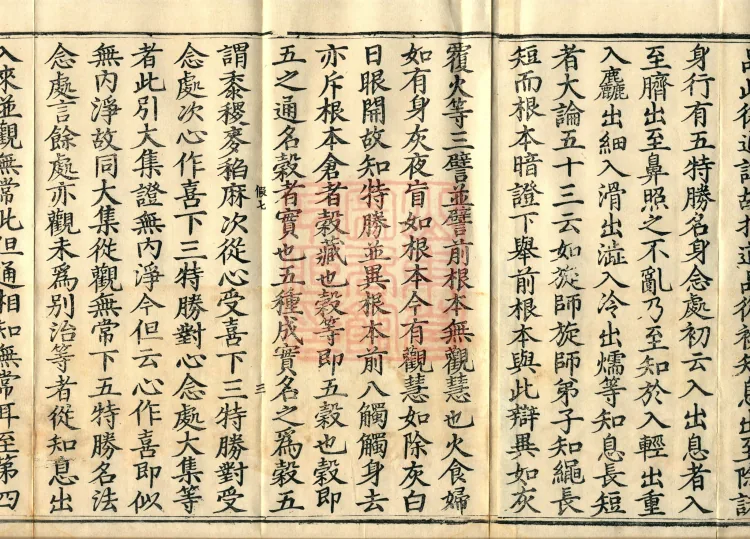 身行有五特勝名身念處初云入出息者入
至臍出至鼻照之不亂乃至知於入輕出重
入麤出細入滑出澁入冷出煗等知息長短
者大論五十三云如旋師旋師弟子知繩長
短而根本暗證下舉前根本與此辯異如灰
覆火等三譬並譬前根本無觀慧也火食婦
如有身灰夜盲如根本今有觀慧如除灰白
日眼開故知特勝並異根本前八觸觸身去
亦斥根本倉者榖藏也榖等即五榖也榖即
五之通名榖者實也五種成實名之爲榖五
假七
三
謂黍稷麥稻麻次從心受喜下三特勝對受
念處次心作喜下三特勝對心念處大集等
者此引大集證無内淨今但云心作喜即似
無内淨故同大集從觀無常下五特勝名法
念處言餘處亦觀未爲別治等者從知息出
入來並觀無常此但通相知無常耳至第四